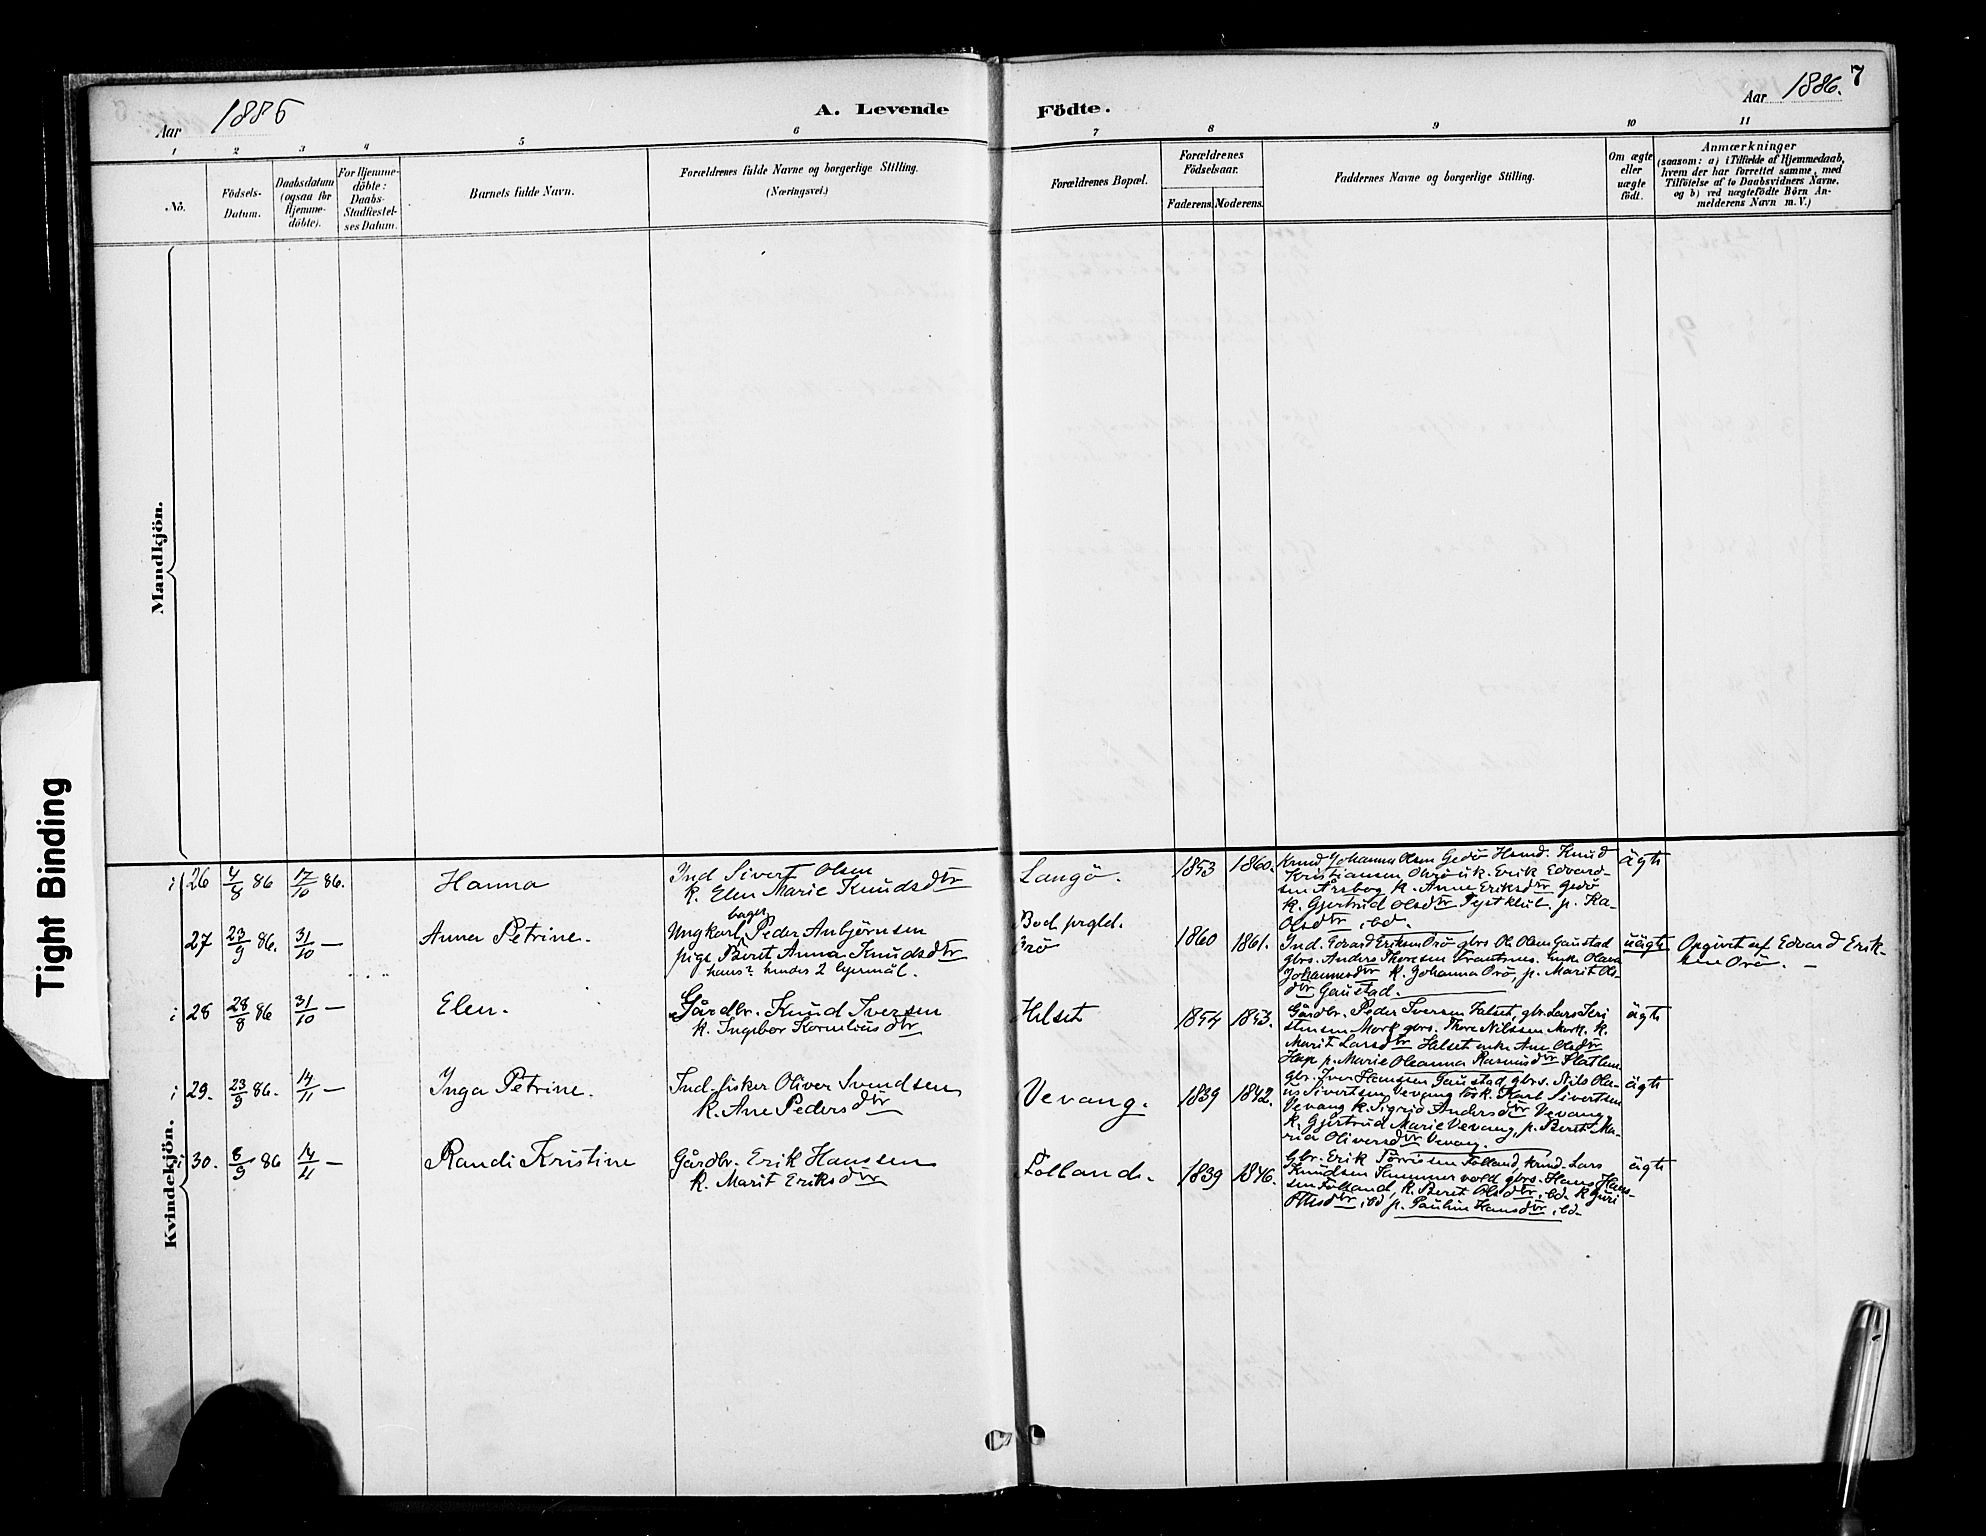 Aar 1886
A. Levende Födte.
Aar 1886. 7
1 2 3 4 5 6 7 8 9 10 11
No.
Födsels-Datum.
Daabsdatum (ogsaa for Hjemme-döbte).
For Hjemme-döbte: Daabs-Stadfæstel-ses Datum.
Barnets fulde Navn.
Forældrenes fulde Navne og borgerlige Stilling.
(Næringsvei.)
Forældrenes Bopæl.
Forældrenes Födselsaar.
Faderens. Moderens.
Faddernes Navne og borgerlige Stilling.
Om ægte eller uægte födt.
Anmærkninger
(saasom: a) i Tilfælde af Hjemmedaab,
hvem der har forrettet samme, med
Tilföielse af to Daabsvidners Navne,
og b) ved uægtefödte Börn An-
melderens Navn m. V.)
Mandkjön.
Kvindekjön.
Tight Binding
i 26 4/8 86 17/10 86. Hanna
Ind Sivert Olsen
k. Elen Marie Knudsdtr
Langö. 1853 1860.
Johanna Olsen Gedö Knud
Kristiansen Erik Edvard-
sen k. Anne Eriksdtr Gedö
k. Gjertrud Olsdtr p. Ka-
Olsdtr ibd.
ägte
27 23/9 86. 31/10 — Anna Petrine.
Ungkarl bager Peder Anbjørnsen
pige Berit Anna Knudsdtr
hans? hendes 2 lejermål.
Bod prgld.
Orö 1860 1861.
Ind. Edvard Eriksen Orö gbrs Ol. Olsen Gaustad
gbrs. Anders Thoresen enke Olava
Johannesdtr k. Johanna Orö, p. Marit Ols
dtr Gaustad.
uägte
Opgivet af Edvard Erik-
sen Orö. —
i 28 28/8 86 31/10 — Elen.
Gårdbr. Knud Iversen
k. Ingebor Korneliusdtr
Helset 1854 1853.
Gårdbr. Peder Iversen Halset, gbr. Lars Kri
stensen Mork gbrs. Thore Nilssen Mork. k.
Marit Larsdtr Helset enke Ane Olsdtr
p. Marie Oleanna Rasmusdtr
ägte
i 29. 23/9 86. 14/11 — Inga Petrine.
Ind. fisker Oliver Svendsen
k. Ane Pedersdtr
Vevang. 1839 1842.
gbr. Iver Hansen Gaustad, gbrs. Nils Ola-
us Sivertsen Vevang løsk. Karl Sivertsen
Vevang k. Sigrid Andersdtr Vevang,
k. Gjertrud Marie Vevang, p. Berit Ma-
ria Oliversdtr Vevang.
ägte
i 30. 8/9 86 14/11 — Randi Kristine
Gårdbr. Erik Hanssen
k. Marit Eriksdtr
Folland. 1839 1846.
gbr. Erik Tørrissen Folland, krmd. Lars
Knudsen gbrs. Hans Hans-
sen Folland, k. Beret Olsdtr, ibd k Guri
Olsdtr, ibd p. Pauline Hansdtr, ibd.
ägte